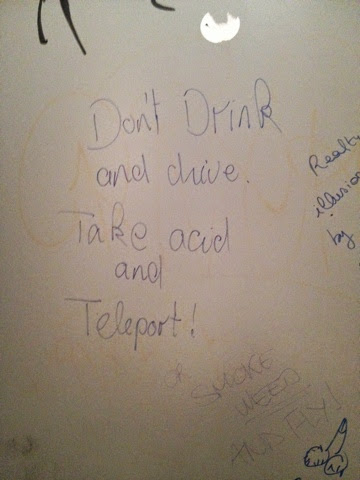 Don't Drink
and drive.
Take acid
and
Teleport!
or
SMOKE
WEED
AND FLY!
illusion
by